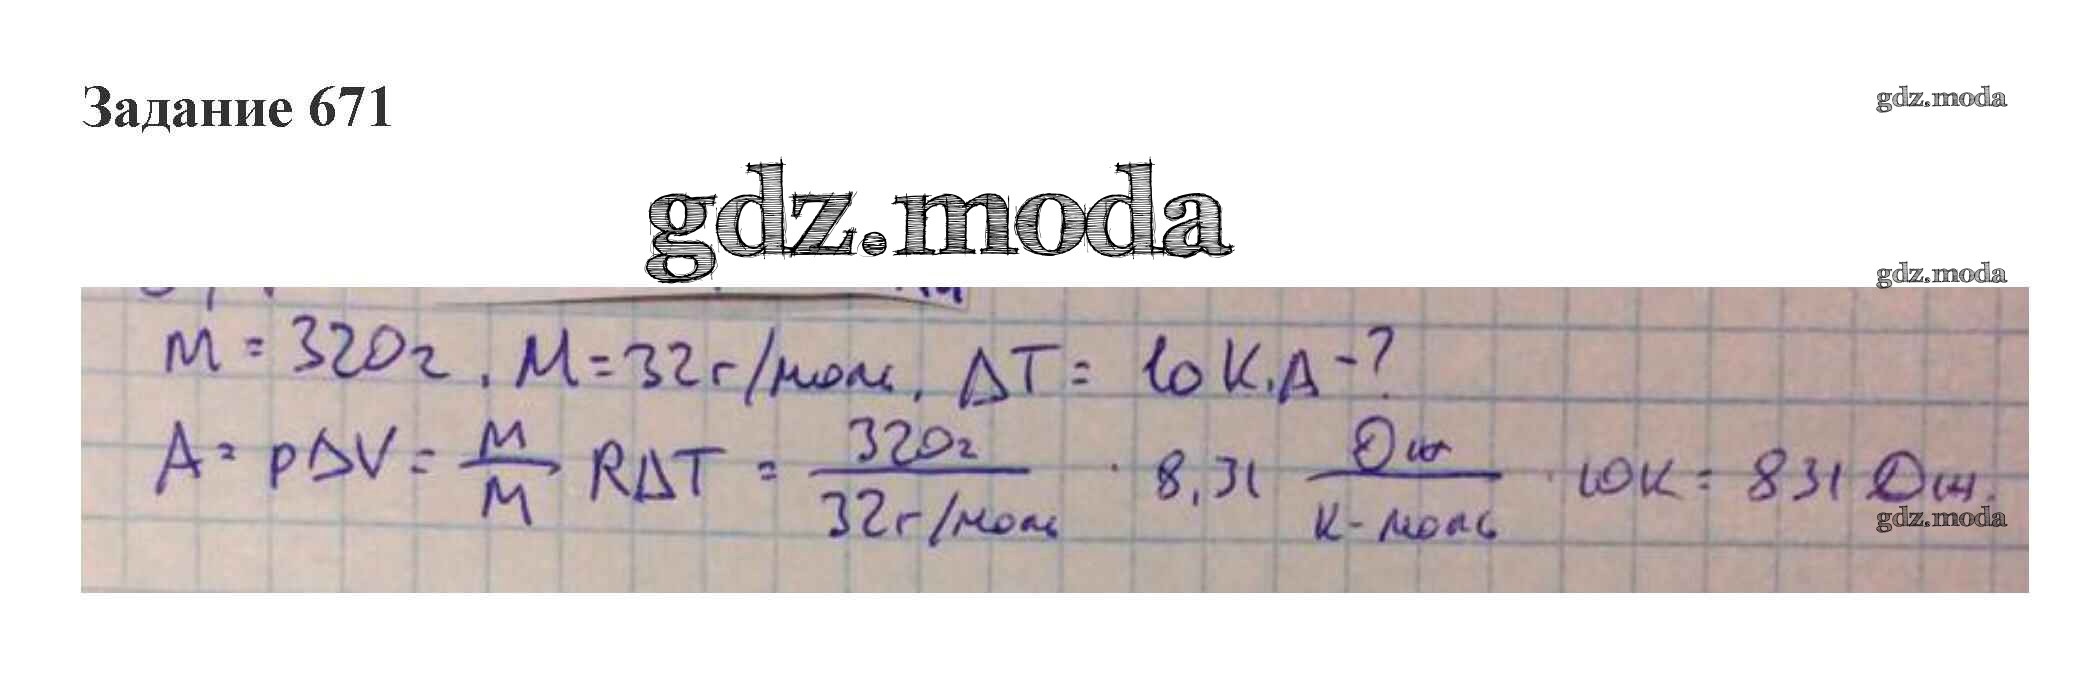 Задание 671
gdz.moda
gdz.moda
gdz.moda
m = 320г, M = 32г/моль, ΔT = 10K. A - ?
A = pΔV = m/M RΔT = 320г/32г/моль · 8,31 Дж/К-моль · 10К = 831 Дж.
gdz.moda